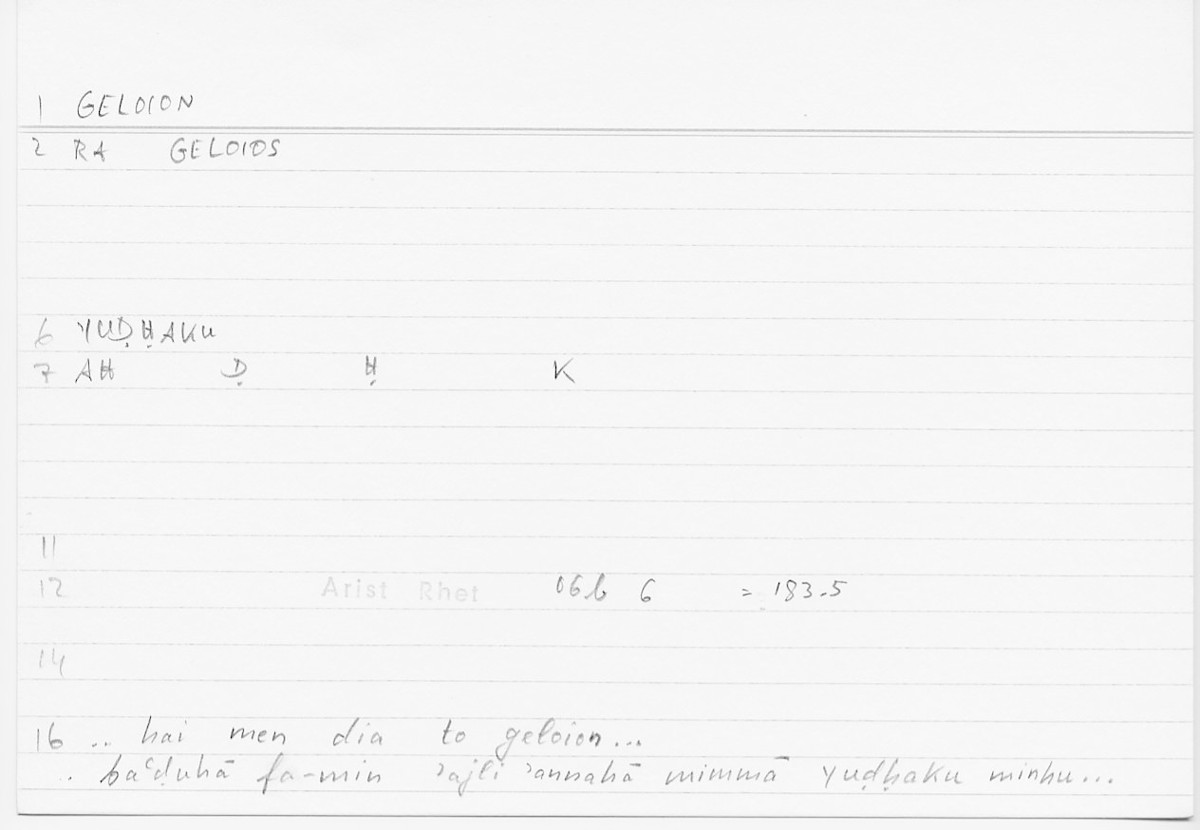 1 GELOION
2 RA GELOIOS
6 YUḌḤAKU
7 AH Ḍ Ḥ K
11
12 Arist Rhet 06b 6 = 183.5
14
16 .. hai men dia to geloion...
.. baʿḍuhā fa-min ʾajli ʾannahā mimmā yuḍḥaku minhu...